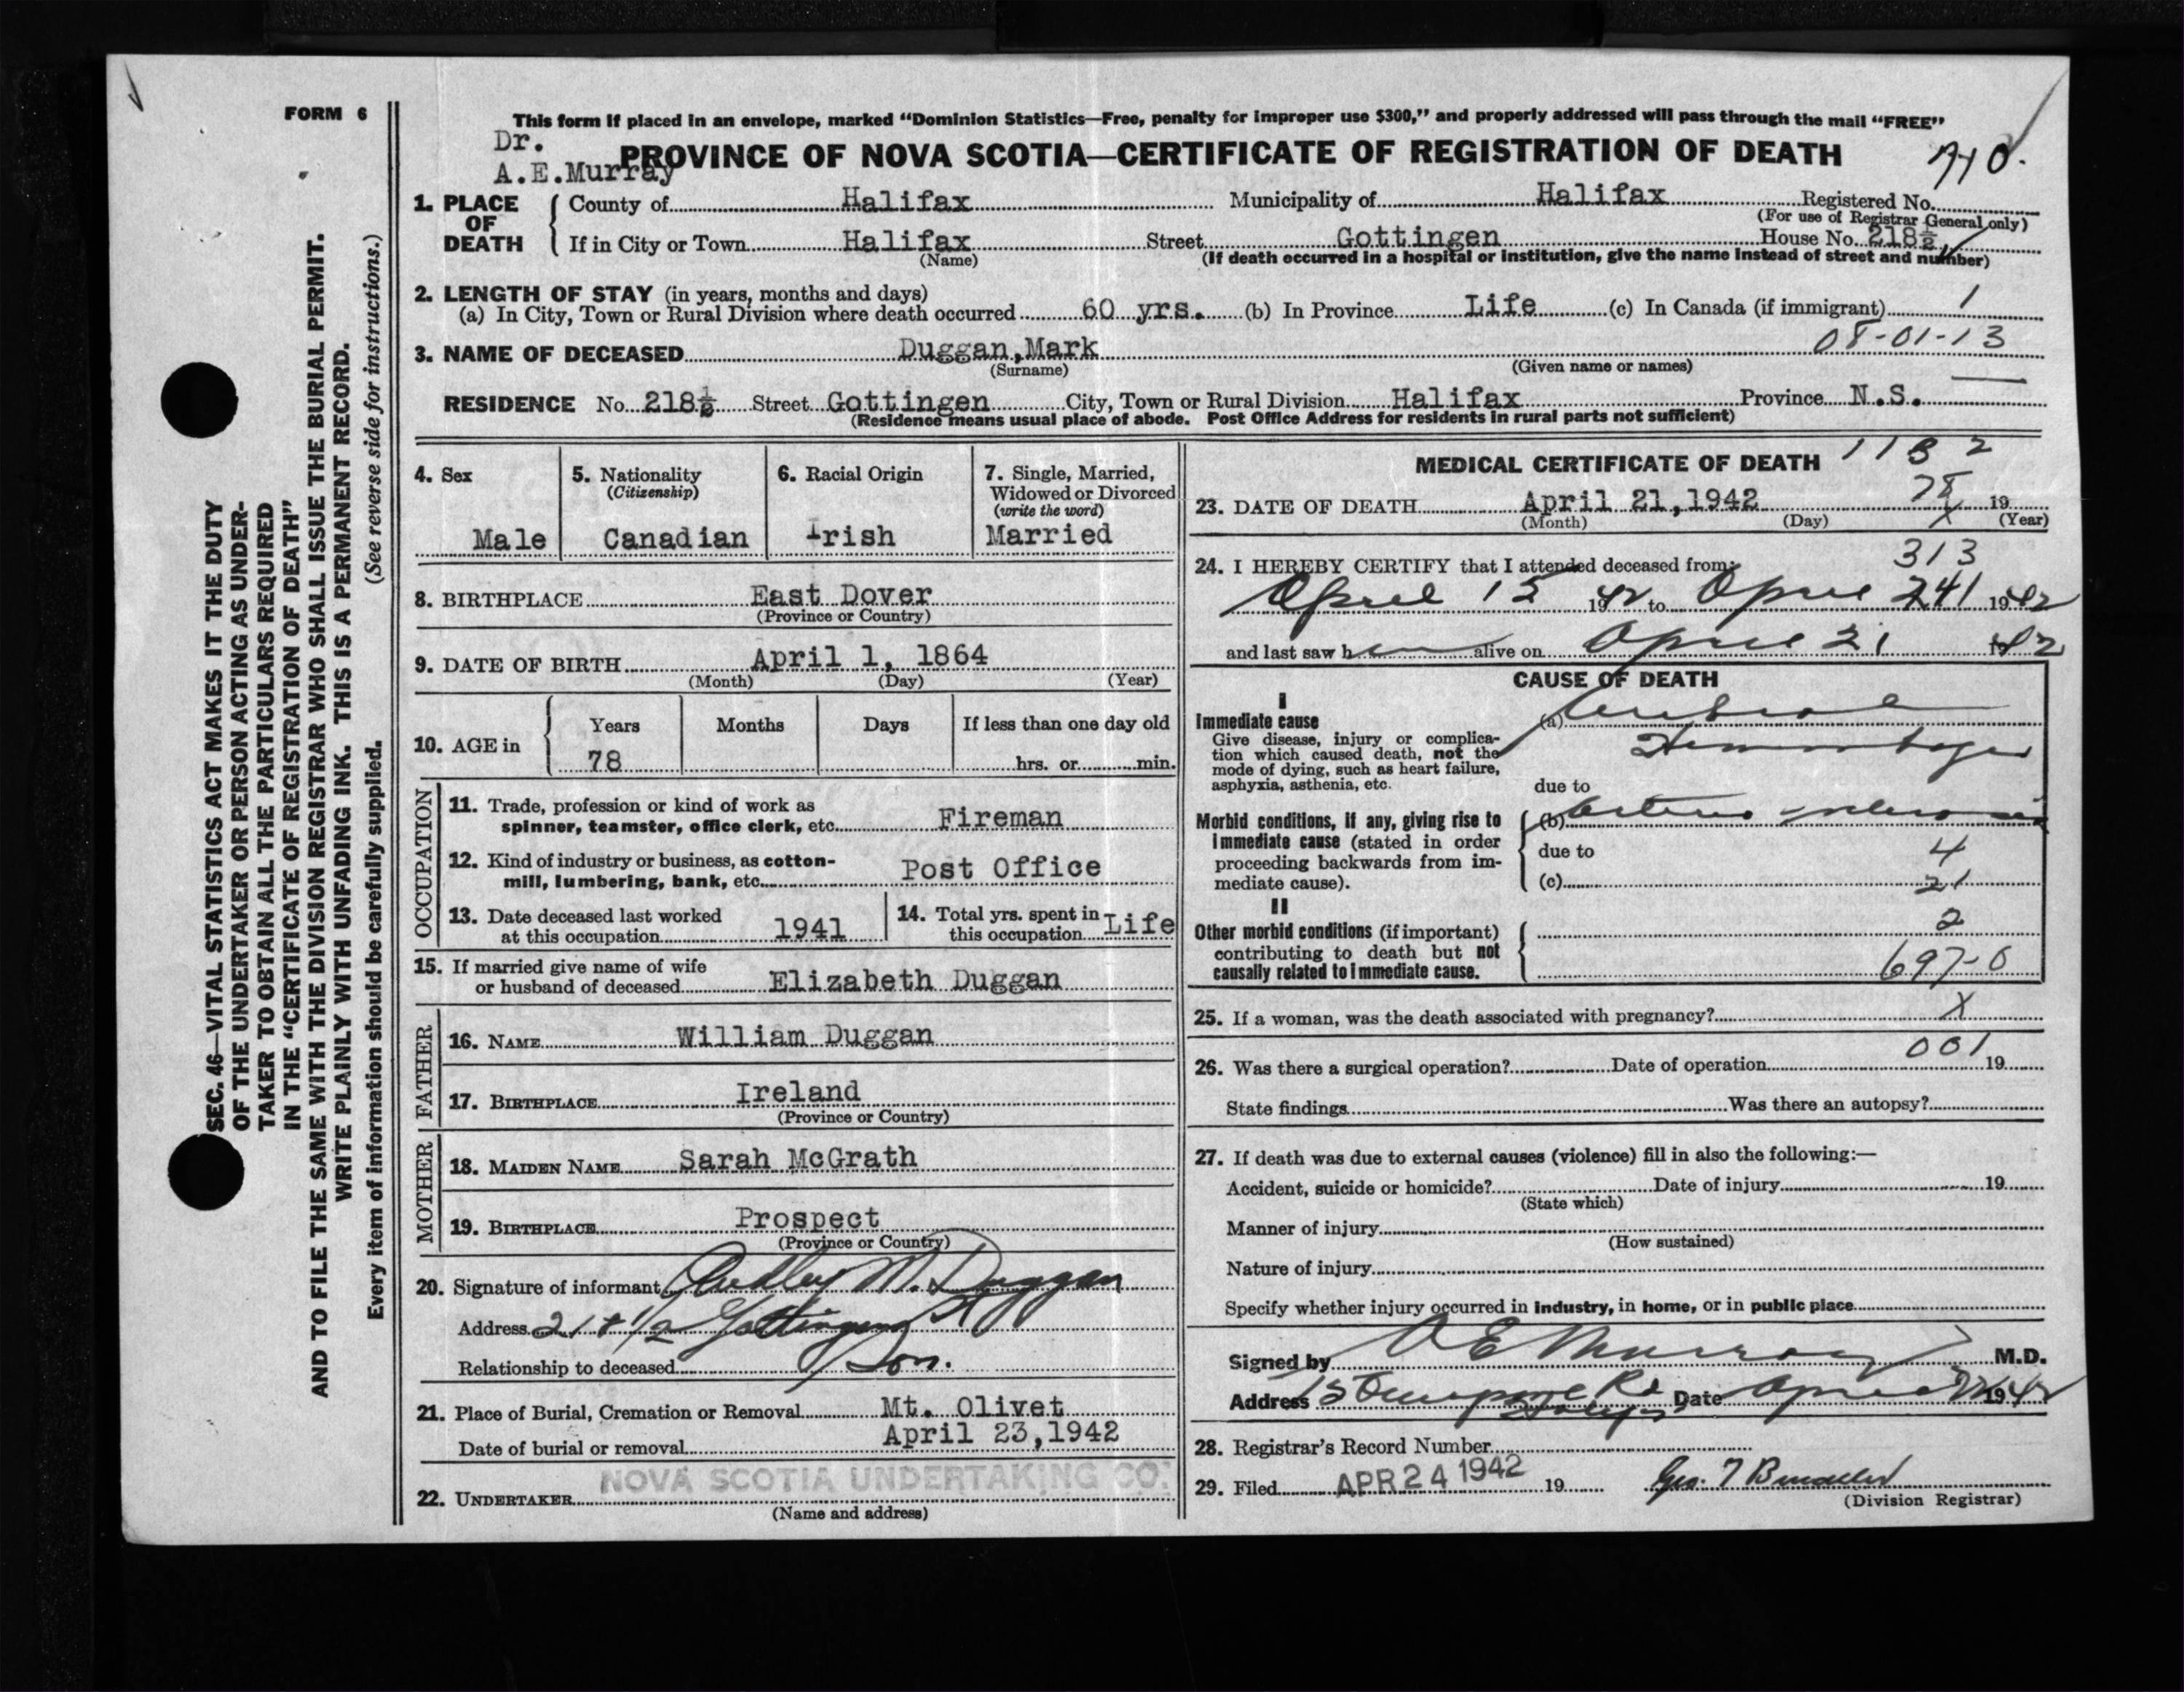 FORM 6
This form if placed in an envelope, marked “Dominion Statistics—Free, penalty for improper use $300,” and properly addressed will pass through the mail “FREE”
Dr.
A.E.Murray
PROVINCE OF NOVA SCOTIA—CERTIFICATE OF REGISTRATION OF DEATH
1. PLACE OF DEATH
County of Halifax Municipality of Halifax Registered No.
(For use of Registrar General only)
If in City or Town Halifax Street Gottingen House No. 218½
(Name) (If death occurred in a hospital or institution, give the name instead of street and number)
2. LENGTH OF STAY (in years, months and days)
(a) In City, Town or Rural Division where death occurred 60 yrs. (b) In Province Life (c) In Canada (if immigrant) 1
08-01-13
3. NAME OF DECEASED Duggan,Mark
(Surname) (Given name or names)
RESIDENCE No. 218½ Street Gottingen City, Town or Rural Division Halifax Province N.S.
(Residence means usual place of abode. Post Office Address for residents in rural parts not sufficient)
4. Sex
Male
5. Nationality
(Citizenship)
Canadian
6. Racial Origin
Irish
7. Single, Married,
Widowed or Divorced
(write the word)
Married
8. BIRTHPLACE East Dover
(Province or Country)
9. DATE OF BIRTH April 1, 1864
(Month) (Day) (Year)
10. AGE in
Years Months Days If less than one day old
78 hrs. or min.
OCCUPATION
11. Trade, profession or kind of work as
spinner, teamster, office clerk, etc. Fireman
12. Kind of industry or business, as cotton-
mill, lumbering, bank, etc. Post Office
13. Date deceased last worked
at this occupation 1941
14. Total yrs. spent in
this occupation Life
15. If married give name of wife
or husband of deceased Elizabeth Duggan
FATHER
16. NAME William Duggan
17. BIRTHPLACE Ireland
(Province or Country)
MOTHER
18. MAIDEN NAME Sarah McGrath
19. BIRTHPLACE Prospect
(Province or Country)
20. Signature of informant Audley M. Duggan
Address 218 1/2 Gottingen St
Relationship to deceased Son.
21. Place of Burial, Cremation or Removal Mt. Olivet
Date of burial or removal April 23,1942
NOVA SCOTIA UNDERTAKING CO.
22. UNDERTAKER
(Name and address)
MEDICAL CERTIFICATE OF DEATH 1132
78
23. DATE OF DEATH April 21,1942 19
(Month) (Day) X (Year)
313
24. I HEREBY CERTIFY that I attended deceased from:
April 15 1942 to April 241 1942
and last saw h alive on April 21 42
CAUSE OF DEATH
I
Immediate cause
Give disease, injury or complica-
tion which caused death, not the
mode of dying, such as heart failure,
asphyxia, asthenia, etc.
(a) Cerebral
Hemorrhage
due to
Morbid conditions, if any, giving rise to
immediate cause (stated in order
proceeding backwards from im-
mediate cause).
(b) Arterio sclerosis
due to 4
(c) 21
II
Other morbid conditions (if important)
contributing to death but not
causally related to immediate cause.
2
697-0
25. If a woman, was the death associated with pregnancy? X
001
26. Was there a surgical operation? Date of operation 19
State findings Was there an autopsy?
27. If death was due to external causes (violence) fill in also the following:—
Accident, suicide or homicide? Date of injury 19
(State which)
Manner of injury
(How sustained)
Nature of injury
Specify whether injury occurred in industry, in home, or in public place
Signed by A E Murray M.D.
Address Date April 22 1942
28. Registrar's Record Number
29. Filed APR 24 1942 19 Geo. T
(Division Registrar)
SEC. 46—VITAL STATISTICS ACT MAKES IT THE DUTY
OF THE UNDERTAKER OR PERSON ACTING AS UNDER-
TAKER TO OBTAIN ALL THE PARTICULARS REQUIRED
IN THE “CERTIFICATE OF REGISTRATION OF DEATH”
AND TO FILE THE SAME WITH THE DIVISION REGISTRAR WHO SHALL ISSUE THE BURIAL PERMIT.
WRITE PLAINLY WITH UNFADING INK. THIS IS A PERMANENT RECORD.
Every item of information should be carefully supplied. (See reverse side for instructions.)